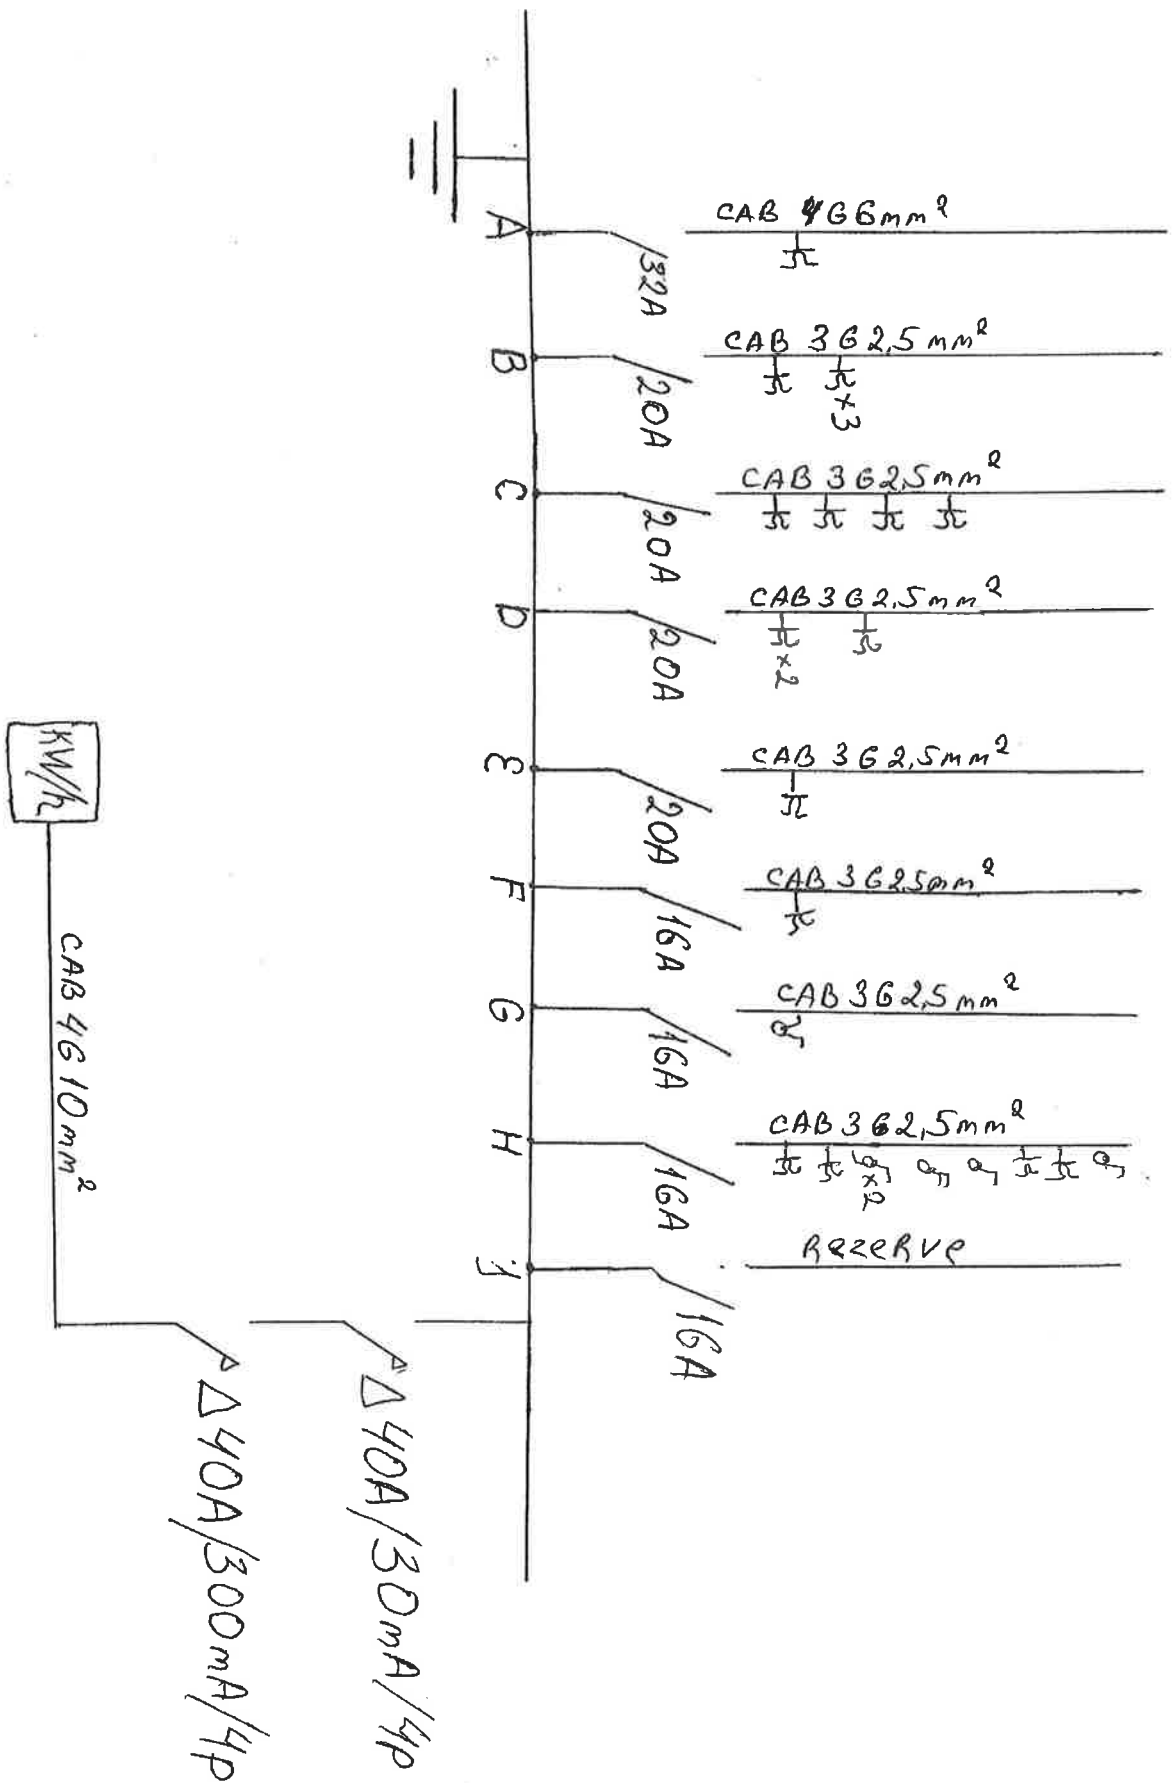 A
32A
CAB 4G6mm²
B
20A
CAB 3G2,5mm²
x3
C
20A
CAB 3G2,5mm²
D
20A
CAB 3G2,5mm²
x2
E
20A
CAB 3G2,5mm²
F
16A
CAB 3G25mm²
G
16A
CAB 3G2,5mm²
H
16A
CAB 3G2,5mm²
y
16A
RezeRve
KW/h
CAB 4G10mm²
Δ40A/30mA/4p
Δ40A/300mA/4p